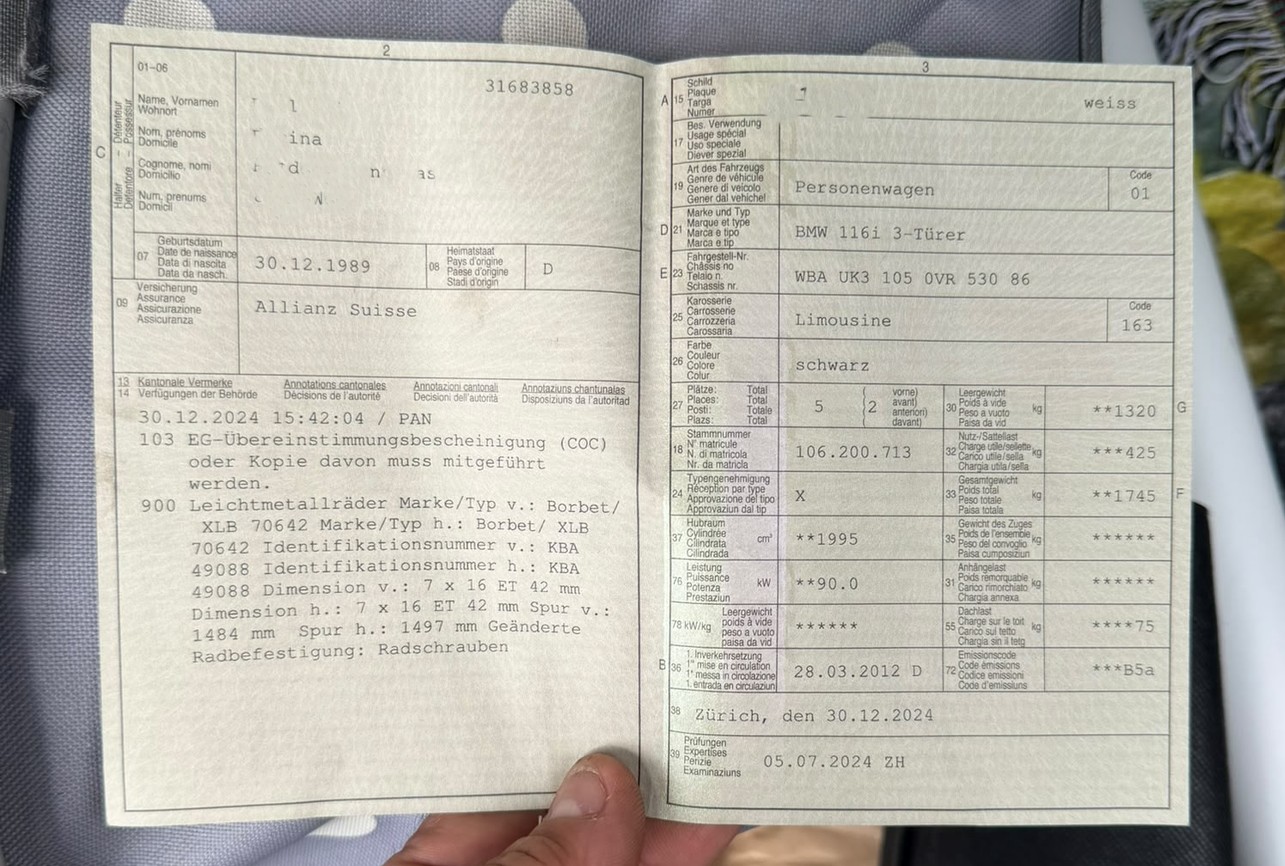 2
01-06
31683858
C
Halter - Détenteur
Detentore - Possessur
Name, Vornamen
Wohnort
Nom, prénoms
Domicile
Cognome, nomi
Domicilio
Num, prenums
Domicil
ina
07
Geburtsdatum
Date de naissance
Data di nascita
Data da nasch.
30.12.1989
08
Heimatstaat
Pays d'origine
Paese d'origine
Stadi d'origin
D
09
Versicherung
Assurance
Assicurazione
Assicuranza
Allianz Suisse
13 Kantonale Vermerke Annotations cantonales Annotazioni cantonali Annotaziuns chantunalas
14 Verfügungen der Behörde Décisions de l'autorité Decisioni dell'autorità Disposiziuns da l'autoritad
30.12.2024 15:42:04 / PAN
103 EG-Übereinstimmungsbescheinigung (COC)
oder Kopie davon muss mitgeführt
werden.
900 Leichtmetallräder Marke/Typ v.: Borbet/
XLB 70642 Marke/Typ h.: Borbet/ XLB
70642 Identifikationsnummer v.: KBA
49088 Identifikationsnummer h.: KBA
49088 Dimension v.: 7 x 16 ET 42 mm
Dimension h.: 7 x 16 ET 42 mm Spur v.:
1484 mm Spur h.: 1497 mm Geänderte
Radbefestigung: Radschrauben
3
A 15
Schild
Plaque
Targa
Numer
weiss
17
Bes. Verwendung
Usage spécial
Uso speciale
Diever spezial
19
Art des Fahrzeugs
Genre de véhicule
Genere di veicolo
Gener dal vehichel
Personenwagen
Code
01
D 21
Marke und Typ
Marque et type
Marca e tipo
Marca e tip
BMW 116i 3-Türer
E 23
Fahrgestell-Nr.
Châssis no
Telaio n.
Schassis nr.
WBA UK3 105 0VR 530 86
25
Karosserie
Carrosserie
Carrozzeria
Carossaria
Limousine
Code
163
26
Farbe
Couleur
Colore
Colur
schwarz
27
Plätze: Total
Places: Total
Posti: Totale
Plazs: Total
5
2
vorne)
avant)
anteriori)
davant)
30
Leergewicht
Poids à vide
Peso a vuoto
Paisa da vid
kg
**1320
G
18
Stammnummer
N° matricule
N. di matricola
Nr. da matricla
106.200.713
32
Nutz-/Sattellast
Charge utile/sellette
Carico utile/sella
Chargia utila/sella
kg
***425
24
Typengenehmigung
Réception par type
Approvazione del tipo
Approvaziun dal tip
X
33
Gesamtgewicht
Poids total
Peso totale
Paisa totala
kg
**1745
F
37
Hubraum
Cylindrée
Cilindrata
Cilindrada
cm³
**1995
35
Gewicht des Zuges
Poids de l'ensemble
Peso del convoglio
Paisa cumposiziun
kg
******
76
Leistung
Puissance
Potenza
Prestaziun
kW
**90.0
31
Anhängelast
Poids remorquable
Carico rimorchiato
Chargia annexa
kg
******
78 kW/kg
Leergewicht
poids à vide
peso a vuoto
paisa da vid
******
55
Dachlast
Charge sur le toit
Carico sul tetto
Chargia sin il tetg
kg
****75
B 36
1. Inverkehrsetzung
1re mise en circulation
1a messa in circolazione
1. entrada en circulaziun
28.03.2012 D
72
Emissionscode
Code émissions
Codice emissioni
Code d'emissiuns
***B5a
38
Zürich, den 30.12.2024
39
Prüfungen
Expertises
Perizie
Examinaziuns
05.07.2024 ZH